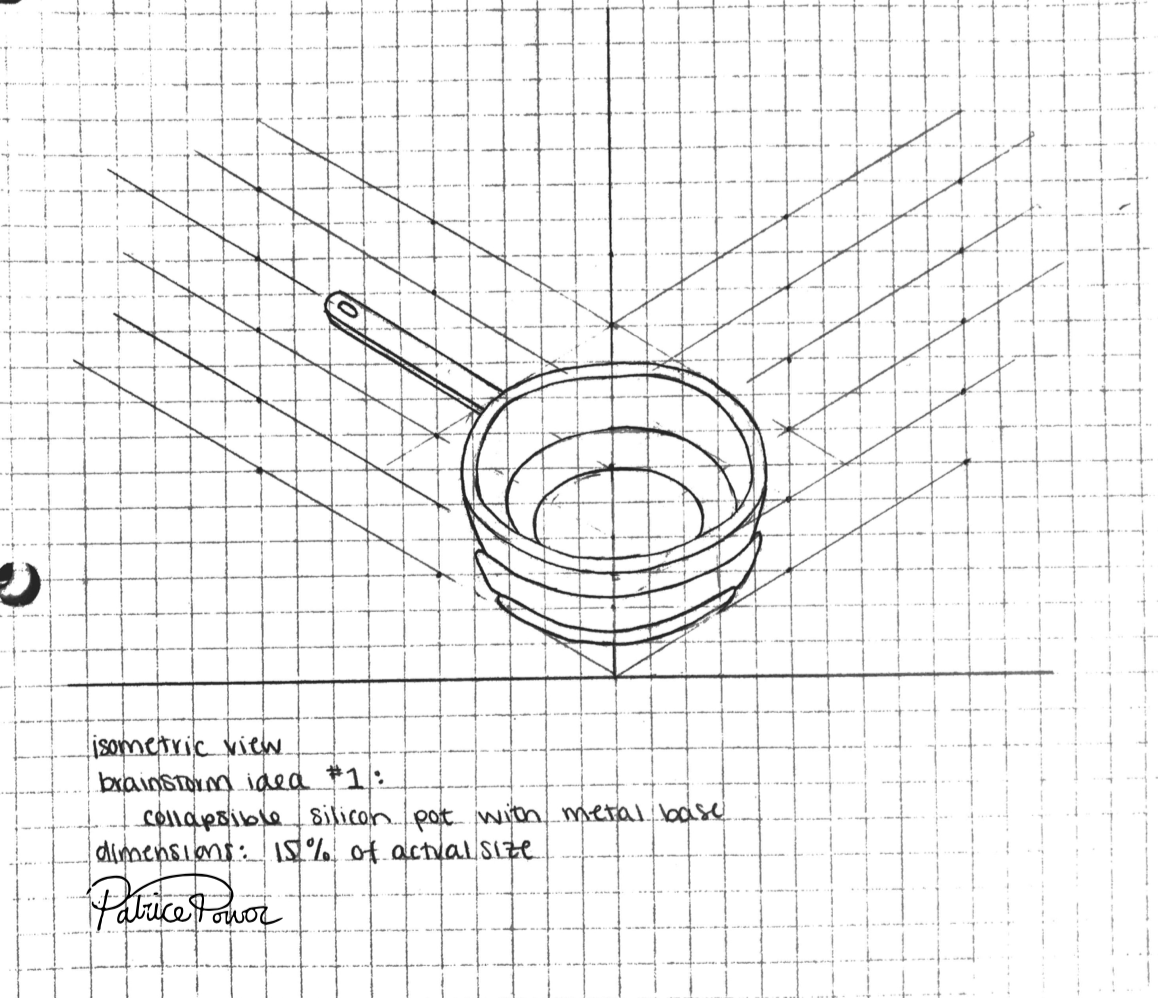 isometric view
brainstorm idea #1:
collapsible silicon pot with metal base
dimensions: 15% of actual size
Patrice Power